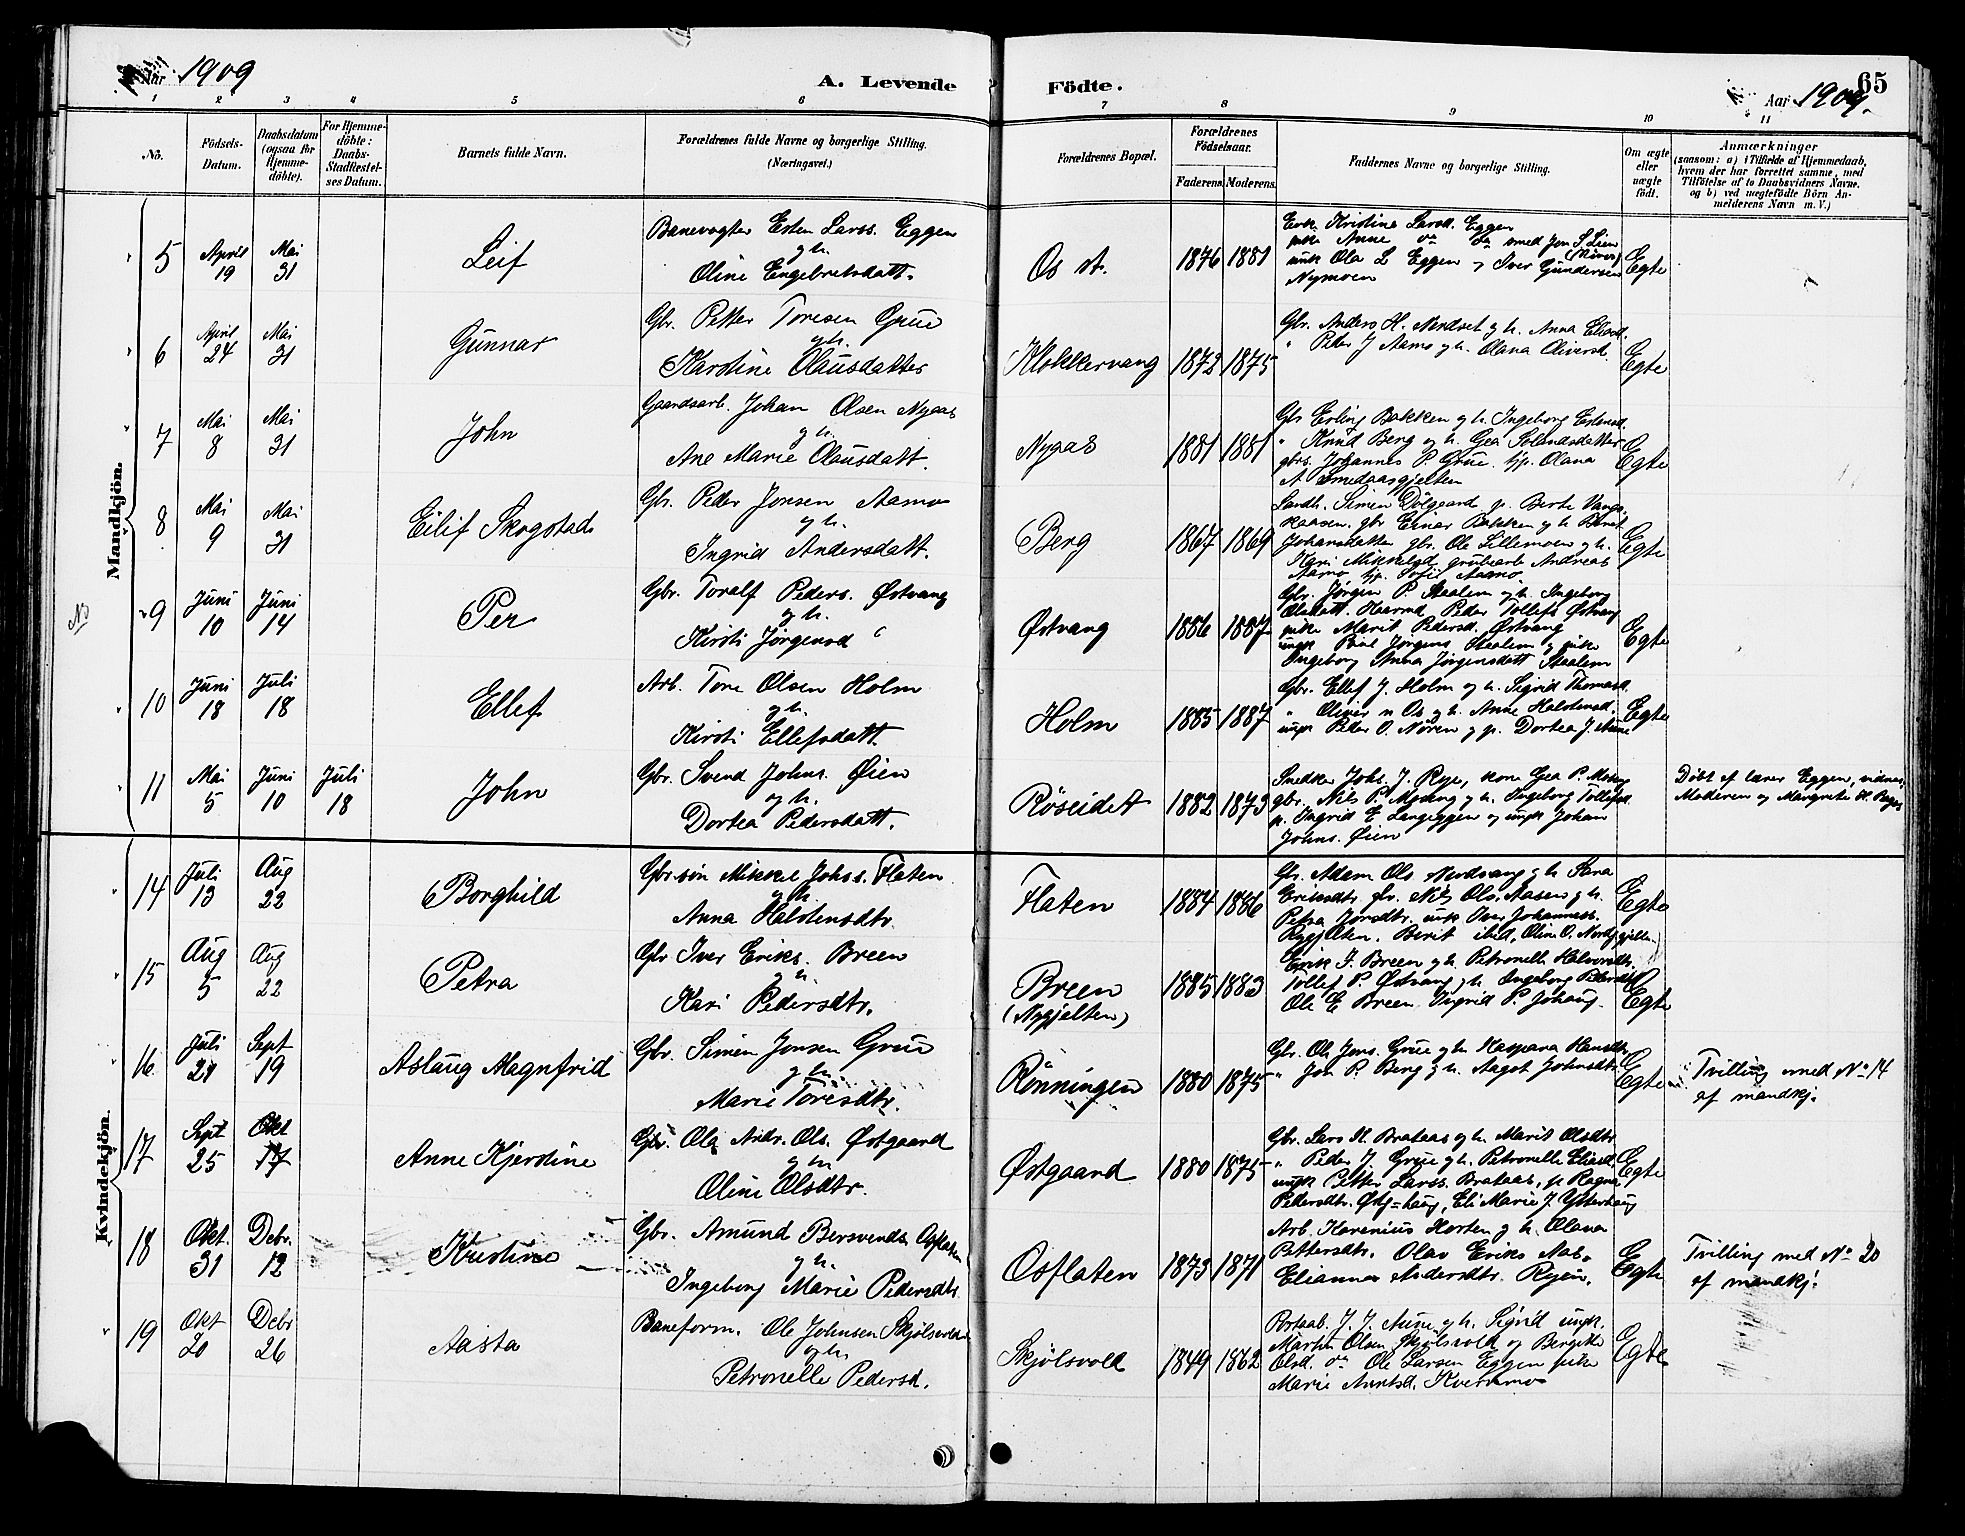 Aar 1909
A. Levende Födte.
Aar 1909.
65
1 2 3 4 5 6 7 8 9 10 11
No.
Födsels-
Datum.
Daabsdatum
(ogsaa for
Hjemme-
döbte).
For Hjemme-
döbte:
Daabs-
Stadfæstel-
ses Datum.
Barnets fulde Navn.
Forældrenes fulde Navne og borgerlige Stilling.
(Næringsvei.)
Forældrenes Bopæl.
Forældrenes
Födselsaar.
Faderens. Moderens.
Faddernes Navne og borgerlige Stilling.
Om ægte
eller
uægte
födt.
Anmærkninger
(saasom: a) i Tilfælde af Hjemmedaab,
hvem der har forrettet samme, med
Tilföielse af to Daabsvidners Navne.
og b) ved uægtefödte Börn An-
melderens Navn m. V.)
Mandkjön.
5 April 19 Mai 31 Leif
Banevogter Esten Larss. Eggen
g h.
Oline Engebretsdatt.
Os st. 1876 1881
Enke Kristine Larsd. Eggen
pike Anne do do smed Jon S Lien
ungk Ola L Eggen, Iver Gundersen
Nymoen
Egte
6 April 24 Mai 31 Gunnar
Gbr. Petter Toresen Grue
g h.
Karoline Olausdatter
Klokkervang 1872 1875
Gbr. Anders H. Nordset g h. Anna Eliasd.
" Peter J Aamo g h. Olana Oliversd.
Egte
7 Mai 8 Mai 31 John
Gaardsarb. Johan Olsen Nyaas
g h.
Ane Marie Olausdatt.
Nyaas 1881 1881
Gbr Erling Bakken g h. Ingeborg Estensd.
" Knud Berg og h. Gea
gbrs. Johannes P. Grue. tjp. Olana
A Smedaasgjelten
Egte
8 Mai 9 Mai 31 Eilif Skogstad
Gbr. Peder Jonsen Aamo
g h.
Ingrid Andersdatt.
Berg 1867 1869
Landh. Simen Dølgaard p. Berte Vangs-
kaasen. gbr Einar Bakken g h Berit
Johansdatter gbr. Ole Lillemoen g h.
Kari Mikkelsd. grubearb Andreas
Aamo tjp. Aamo
Egte
No
9 Juni 10 Juni 14 Per
Gbr. Toralf Peders. Østvang
g h.
Kirsti Jørgensd "
Østvang 1886 1887
Gbr. Jørgen P. Staalem g h. Ingeborg
Olsdatt. Peder Tollefs Østvang
pike Marit Pedersd. Østvang
ungk Jørgens Staalem g pike
Ingeborg Anna Jørgensdatt Staalem
Egte
10 Juni 18 Juli 18 Ellef
Arb. Tore Olsen Holm
g h.
Kirsti Ellefsdatt.
Holm 1885 1887
Gbr. Ellef J. Holm g h. Sigrid Thomasd.
" Oliver n Os g h. Anne Halstensd.
ungk Peder O. Nören g p. Dortea J. Aune
Egte
11 Mai 5 Juni 10 Juli 18 John
Gbr. Svend Johns. Øien
og h.
Dortea Pedersdatt.
Røseidet 1882 1873
Snedker Johs. J. Rye, kone Gea P. Moseng
gbr. Nils P. Moseng g h. Ingeborg Tollefsd.
p. Ingrid E Langeggen og ungk Johan
Johns. Øien
Døbt af lærer Eggen, vidner
Moderen og Margrete H.
Kvindekjön.
14 Juli 13 Aug 22 Borghild
Gbr.søn Mikkel Johss. Flaten
g h.
Anna Halstensdtr.
Flaten 1884 1886
Gbr. Adam Ols Nordvang g h Sara
Eriksdtr. gbr. Nils Ols. Aasen g h.
Petra Jonsdtr. ungk Iver Johanness.
Berit ibid, Olina O. Nordgjelten.
Egte
15 Aug 5 Aug 22 Petra
Gbr Iver Eriks. Breen
g h.
Kari Pedersdtr.
Breen
(Nygjelten)
1885 1883
Erik J. Breen g h Petronelle Halvorsdtr.
Tollef P. Østvang g h Ingeborg Pedersdtr
Ole E Breen, Ingrid P. Johaug.
Egte
16 Juli 21 Sept 19 Aslaug Magnfrid
Gbr. Simen Jonsen Grue
g h.
Marie Toresdtr.
Rønningen 1880 1875
Gbr. Ole Jons. Grue g h Kaspara Hansdtr
" Jon P. Berg g h. Aagot Johnsdtr.
Egte
Tvilling med No 14
af mandkj.
17 Sept 25 Okt 17 Anne Kjerstine
Gbr. Ola Andr. Ols. Østgaard
g h
Oline Olsdtr.
Østgaard 1880 1875
Gbr. Lars H. Brataas g h. Marit Olsdtr.
" Peder J Grue g h. Petronelle Eliasd.
ungk Petter Larss. Brataas, p Ragna
Pedersdtr. Østg=haug, Eli Marie J. Ytterhaug
Egte
18 Okt. 31 Debr. 12 Kristine
Gbr. Amund Bersvends. Osflaten
g h.
Ingeborg Marie Pedersdtr.
Osflaten 1873 1871
Arb. Karenius Horten g h. Olava
Pettersdtr. Olav Eriks Aas,
Elianna Andersdtr. Ryen.
Egte
Tvilling med No 20
af mandkj.
19 Okt 20 Debr 26 Aasta
Baneform. Ole Johnsen Skjölsvold
og h.
Petronelle Pedersd.
Skjölsvold 1849 1862
Postaab. J. J. Aune g h. Sigrid ungk.
Martin Olsen Skjölsvold og Bergitte
Olsd. do Ole Larsen Eggen pike
Marie Arntsd. Kvernmo
Egte